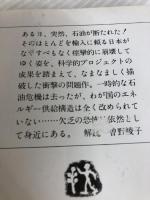 ある日、突然、石油が断たれた！
そのほとんどを輸入に頼る日本が
なすすべもなく痙攣的に崩壊して
ゆく姿を、科学的プロジェクトの
成果を踏まえて、なまなましく描
破した衝撃の問題作。一時的な石
油危機は去ったが、わが国のエネ
ルギー供給構造は全く改められて
いない……欠乏の恐怖は依然とし
て身近にある。 解説 曽野綾子